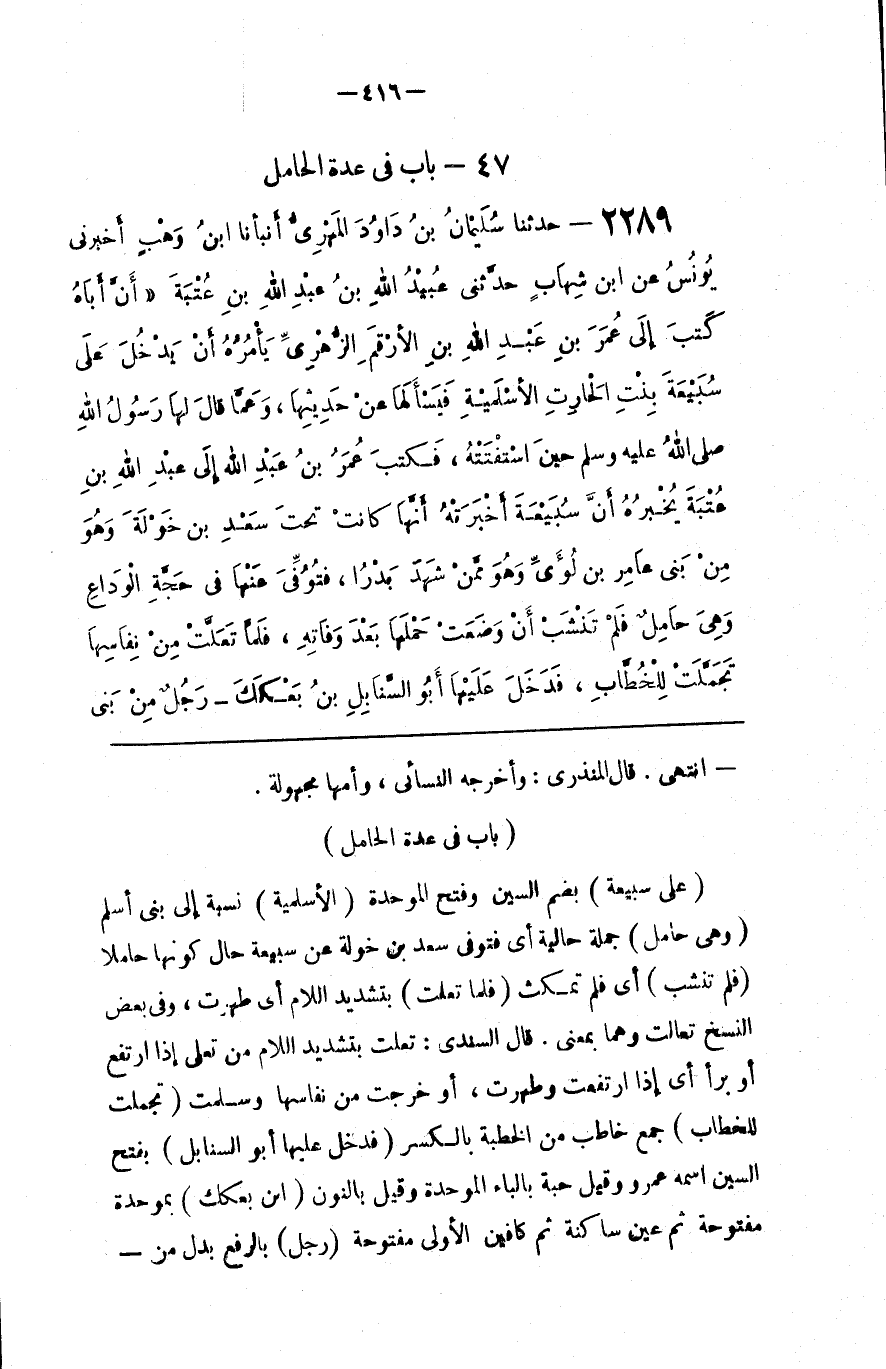 —٤١٦—
٤٧ — باب فى عدة الحامل
٢٢٨٩ — حدثنا سُلَيْمانُ بنُ دَاوُدَ المَهْرِىُّ أنبأنا ابنُ وَهْبٍ أخبرنى
يُونُسُ عن ابن شِهابٍ حدَّثنى عُبَيْدُ اللهِ بنُ عبْدِ اللهِ بنِ عُتْبَةَ « أنَّ أَبَاهُ
كَتبَ إلَى عُمَرَ بنِ عَبْدِ اللهِ بنِ الأرْقَمِ الزُّهْرِىِّ يَأْمُرُهُ أنْ يَدْخُلَ عَلَى
سُبَيْعَةَ بِنْتِ الحَارِثِ الأسْلَمِيَّةِ فَيَسْأَلَهَا عنْ حَدِيثِها ، وَعَمَّا قالَ لها رَسُولُ اللهِ
صلى اللهُ عليه وسلم حينَ اسْتَفْتَتْهُ ، فَكتبَ عُمَرُ بنُ عَبْدِ الله إلَى عبْدِ اللهِ بنِ
عُتْبَةَ يُخْبِرُهُ أنَّ سُبَيْعَةَ أخْبَرَتْهُ أنَّها كانتْ تحتَ سَعْدِ بن خَوْلَةَ وَهُوَ
مِنْ بَنى عامِر بن لُوَأىِّ وَهُوَ مِمَّنْ شَهِدَ بَدْرًا ، فتُوُفِّىَ عَنْهَا فى حَجَّةِ الْوَدَاعِ
وَهِىَ حامِلٌ فَلَمْ تَنْشَبْ أنْ وَضَعَتْ حَمْلَها بَعْدَ وَفَاتِهِ ، فَلمَّا تَعَلَّتْ مِنْ نِفَاسِهَا
تَجَمَّلَتْ لِلْخُطَّابِ ، فَدَخَلَ عَلَيْهَا أبُو السَّنَابِلِ بنُ بَعْكَكَ — رَجُلٌ مِنْ بَنى
— انتهى . قال المنذرى : وأخرجه النسائى ، وأمها مجهولة .
( باب فى عدة الحامل )
( على سبيعة ) بضم السين وفتح الموحدة ( الأسلمية ) نسبة إلى بنى أسلم
( وهى حامل ) جملة حالية أى فتوفى سعد بن خولة عن سبيعة حال كونها حاملا
( فلم تنشب ) أى فلم تمكث ( فلما تعلت ) بتشديد اللام أى طهرت ، وفى بعض
النسخ تعالت وهما بمعنى . قال السندى : تعلت بتشديد اللام من تعلى إذا ارتفع
أو برأ أى إذا ارتفعت وطهرت ، أو خرجت من نفاسها وسلمت ( تجملت
للخطاب ) جمع خاطب من الخطبة بالكسر ( فدخل عليها أبو السنابل ) بفتح
السين اسمه عمرو وقيل حبة بالباء الموحدة وقيل بالنون ( ابن بعكك ) بموحدة
مفتوحة ثم عين ساكنة ثم كافين الأولى مفتوحة (رجل) بالرفع بدل من —